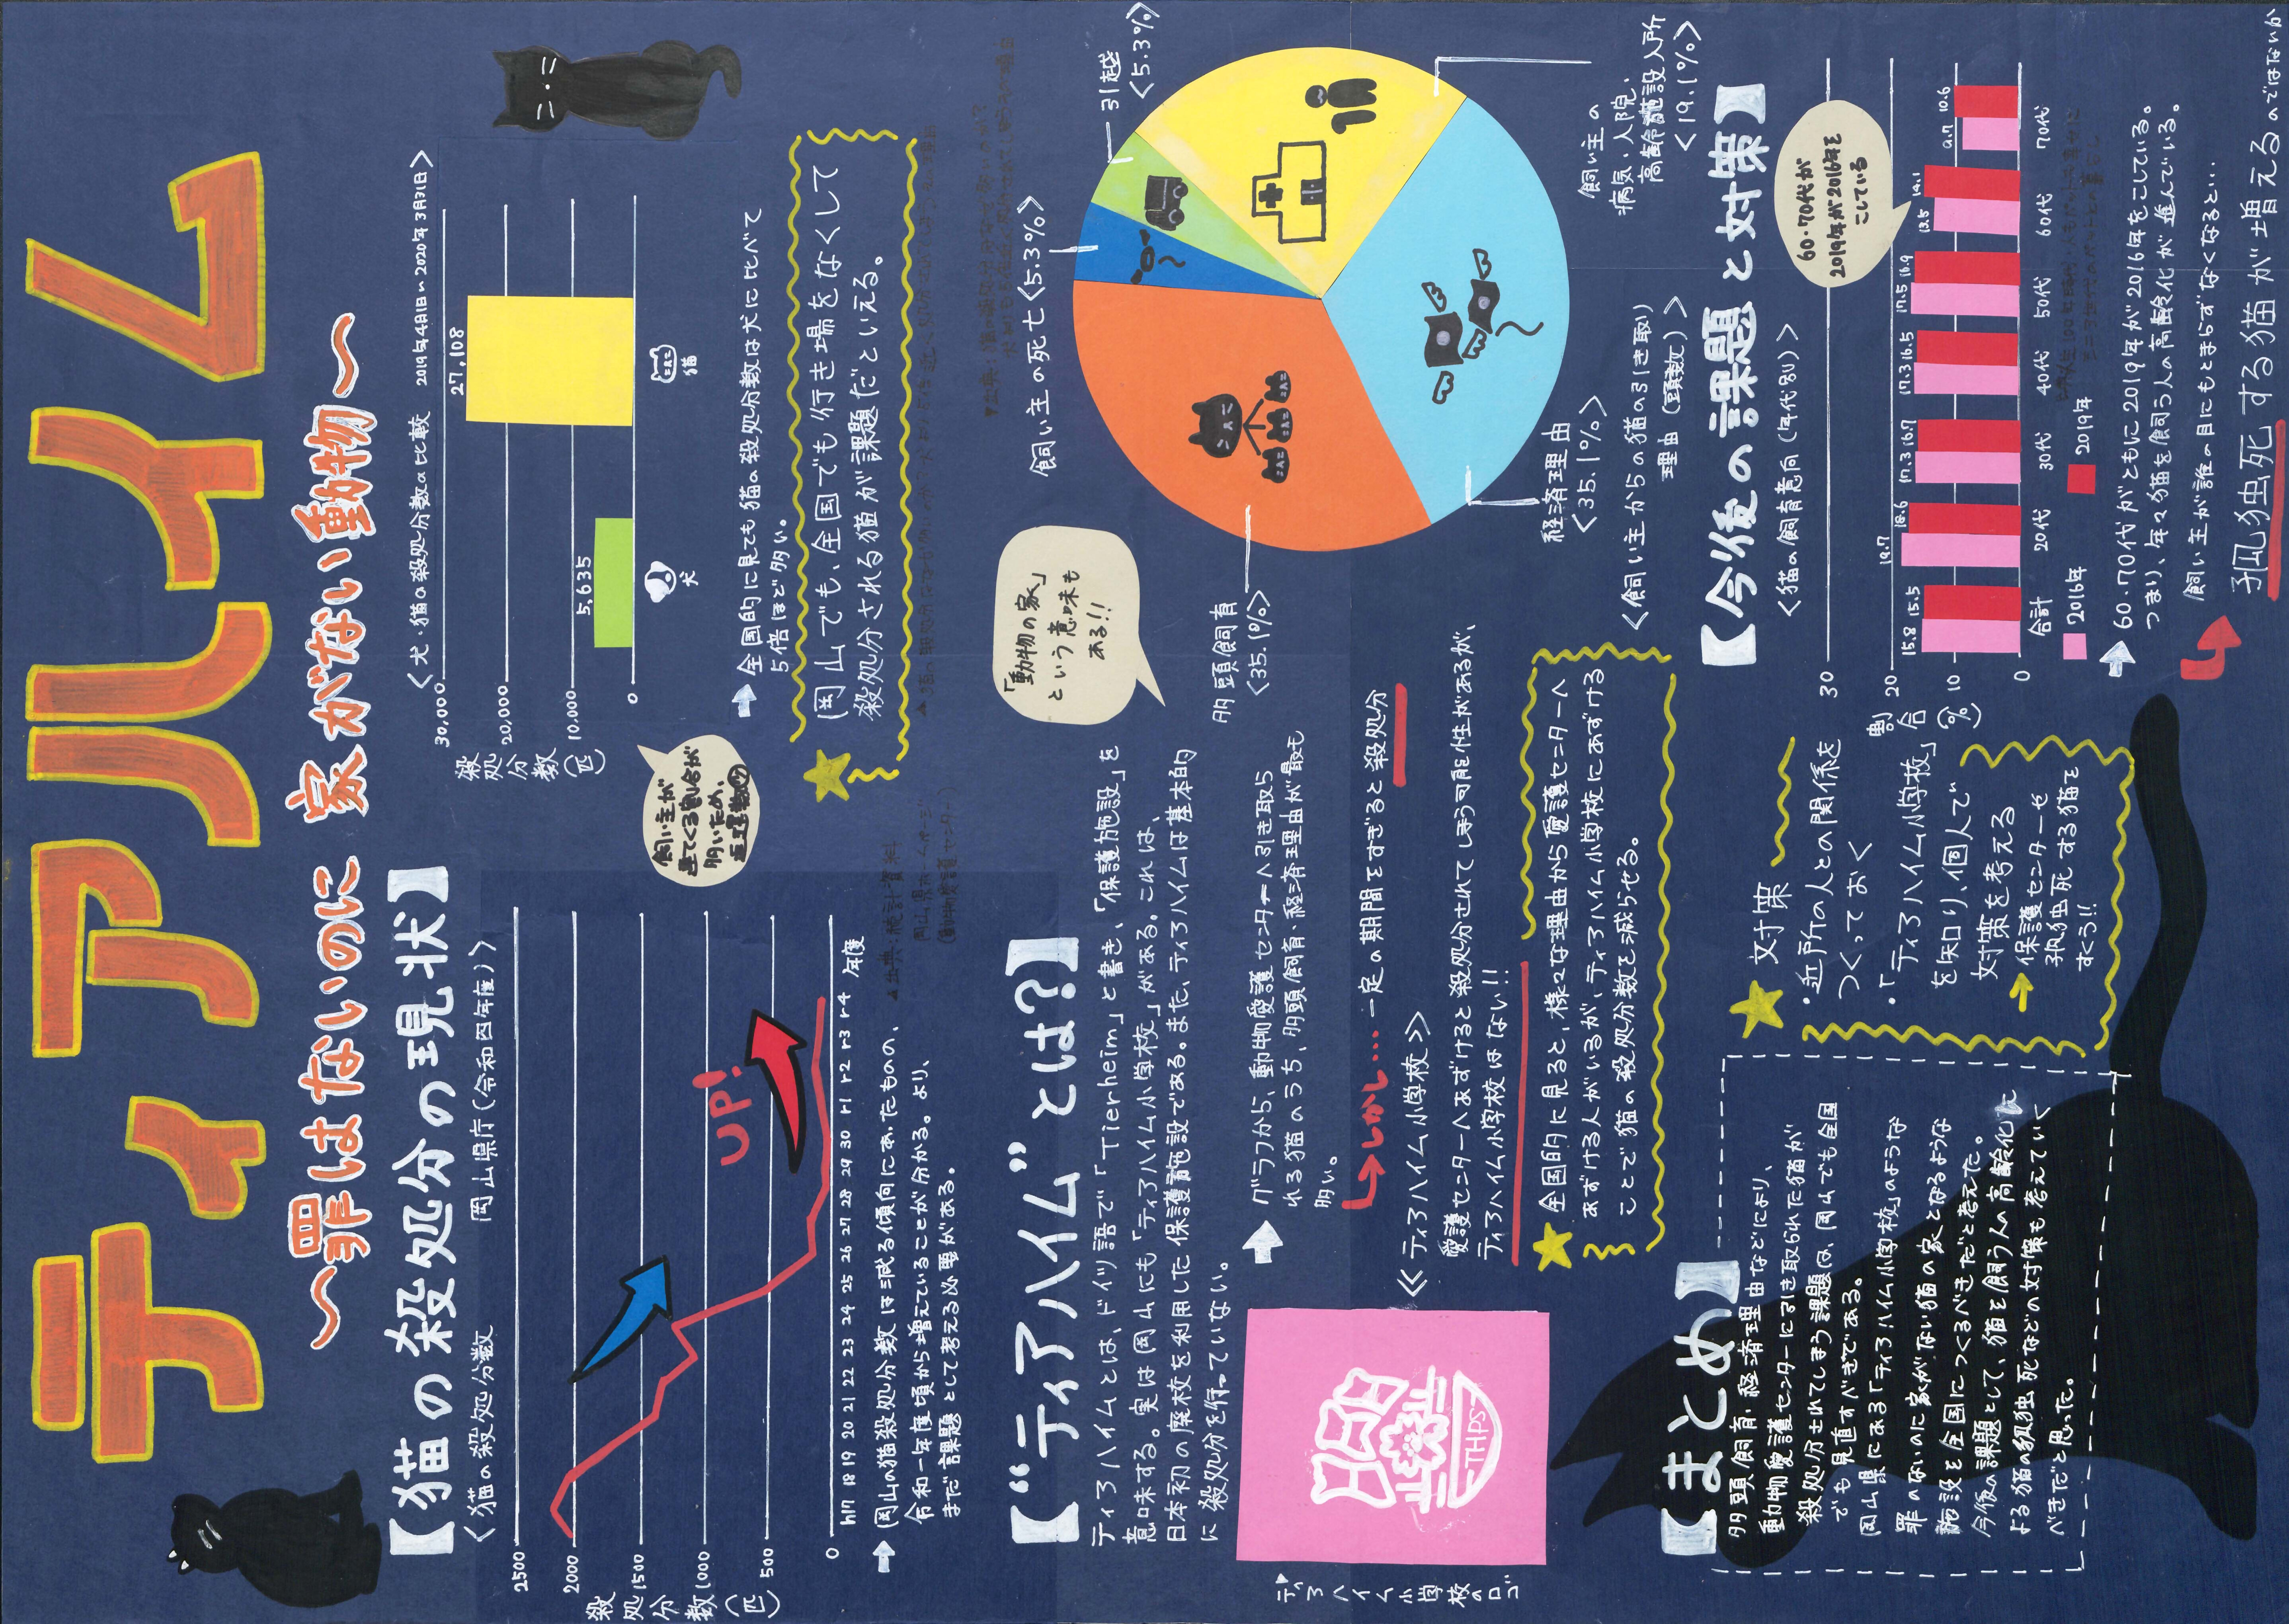 ティアハイム
〜罪はないのに 家がない動物〜
【猫の殺処分の現状】
〈猫の殺処分数 岡山県庁(令和四年度)〉
殺処分数(匹)
2500
2000
1500
1000
500
0
UP!
h17 18 19 20 21 22 23 24 25 26 27 28 29 30 r1 r2 r3 r4 年度
▲出典:統計資料
岡山県ホームページ
(動物愛護センター)
➡岡山の猫殺処分数は減る傾向にあったものの、
令和一年度頃から増えていることが分かる。より、
まだ課題として考える必要がある。
飼い主が
捨てくる割合が
多いため、
〈犬・猫の殺処分数の比較 2019年4月1日〜2020年3月31日〉
殺処分数(匹)
30,000
20,000
10,000
0
5,635
27,108
犬
猫
➡全国的に見ても猫の殺処分数は犬に比べて
5倍ほど多い。
岡山でも、全国でも行き場をなくして
殺処分される猫が課題だといえる。
【“ティアハイム”とは?】
ティアハイムとは、ドイツ語で「Tierheim」と書き、「保護施設」を
意味する。実は岡山にも「ティアハイム小学校」がある。これは、
日本初の廃校を利用した保護施設である。また、ティアハイムは基本的
に殺処分を行っていない。
「動物の家」
という意味も
ある!!
ティアハイム小学校のロゴ
THPS
➡グラフから、動物愛護センターへ引き取ら
れる猫のうち、多頭飼育・経済理由が最も
多い。
しかし…一定の期間をすぎると殺処分
≪ティアハイム小学校≫
愛護センターへあずけると殺処分されてしまう可能性があるが、
ティアハイム小学校はない!!
全国的に見ると、様々な理由から愛護センターへ
あずける人がいるが、ティアハイム小学校にあずける
ことで猫の殺処分数を減らせる。
飼い主の死亡〈5.3%〉
引越
〈5.3%〉
飼い主の
病気・入院、
高齢施設入所
〈19.1%〉
経済理由
〈35.1%〉
多頭飼育
〈35.1%〉
〈飼い主からの猫の引き取り
理由(頭数)〉
【今後の課題と対策】
〈猫の飼育意向(年代別)〉
60・70代が
2019年が2016年を
こしている
割合(%)
30
20
10
0
15.8 15.5
19.7 18.6
17.3 16.7
17.3 16.5
17.5 16.9
13.5 14.1
9.7 10.6
合計 20代 30代 40代 50代 60代 70代
2016年 2019年
➡60・70代がともに2019年が2016年をこしている。
つまり、年々猫を飼う人の高齢化が進んでいる。
飼い主が誰の目にもとまらずなくなると…
孤独死する猫が増えるのではないか
対策
・近所の人との関係を
つくっておく
・「ティアハイム小学校」
を知り、個人で
対策を考える
→保護センターで
孤独死する猫を
すくう!!
【まとめ】
多頭飼育・経済理由などにより、
動物愛護センターに引き取られた猫が
殺処分されてしまう課題は、岡山でも全国
でも見直すべきである。
岡山県にある「ティアハイム小学校」のような
罪のないのに家がない猫の家となるような
施設を全国につくるべきだと考えた。
今後の課題として、猫を飼う人の高齢化に
よる猫の孤独死などの対策も考えていく
べきだと思った。